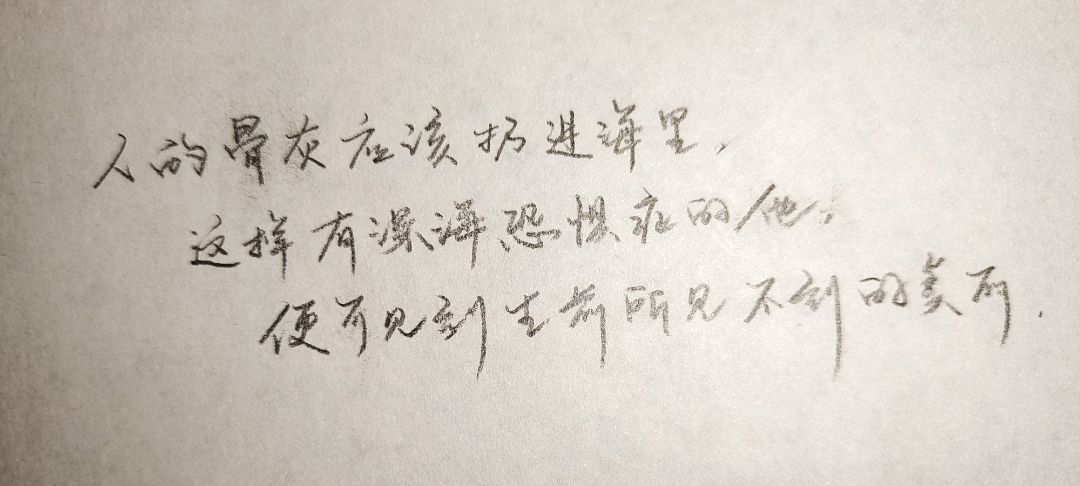 人的骨灰应该扔进海里,
这样有深海恐惧症的他,
便可见到生前所见不到的美